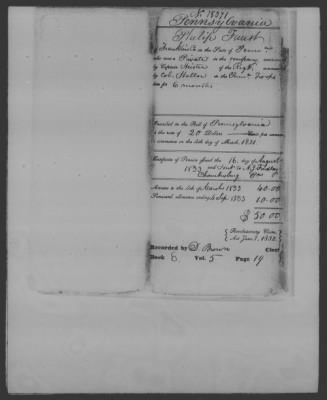 N. 18371
Pennsylvania
Philip Faust
of Franklin Co in the State of Penn
who was a Private in the company
by Captain of the Regt
by Col. in the Troops
for 6 months
Inscribed on the Roll of Pennsylvania
at the rate of 20 Dollars per annum
to commence on the 4th day of March, 1831.
Certificate of Pension issued the 16 day of August
1833 and sent to
Chambersburg
Arrears to the 4th of March 1833 40.00
Semi-anl. allowance ending 4 Sep 1833 10.00
$ 50.00
Revolutionary Claim
Act June 7, 1832.
Recorded by S. Brown Clerk
Book E. Vol. 5 Page 19